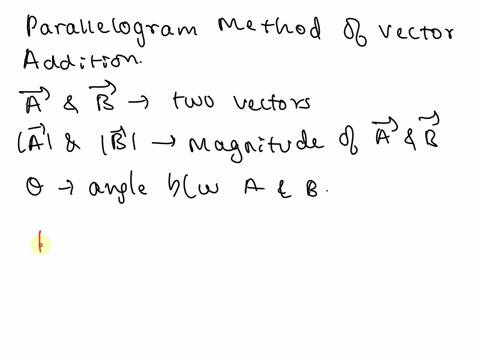 Parallelogram Method of vector
Addition.
A⃗ & B⃗ → two vectors
|A⃗| & |B⃗| → Magnitude of A⃗ & B⃗
θ → angle b/w A & B.